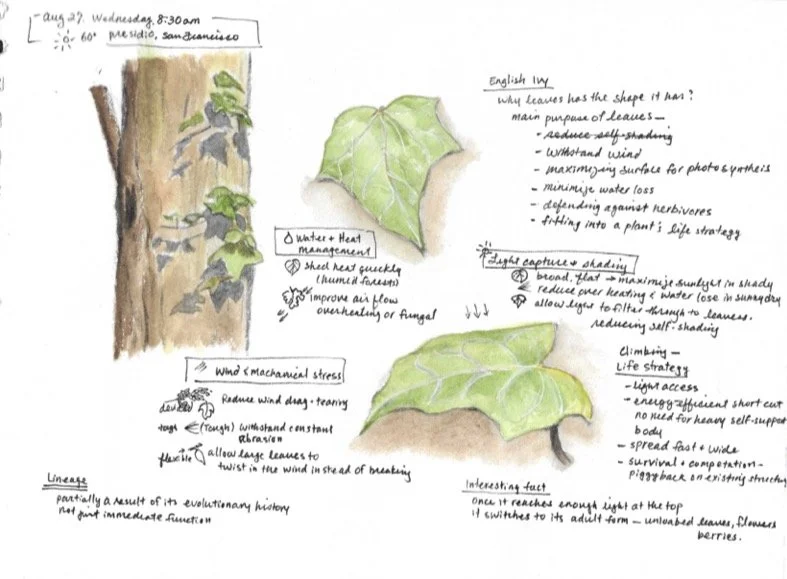 Aug 27. Wednesday, 8:30am
60° presidio, san Francisco
English Ivy
why leaves has the shape it has?
main purpose of leaves—
- reduce self-shading
- withstand wind
- maximizing surface for photosyntheis
- minimize water loss
- defending against herbivores
- fitting into a plant's life strategy
Water + Heat
management
shed heat quickly
(humid forests)
improve air flow
overheating or fungal
Light capture + shading
broad, flat → maximize sunlight in shady
reduce over heating & water lose in sunny dry
allow light to filter through to leaves.
reducing self-shading
Wind & machanical stress
Reduce wind drag + tearing
tough (Tough) withstand constant
abrasion
flexible allow large leaves to
twist in the wind instead of breaking
Climbing —
Life strategy
- light access
- energy-efficient short cut
no need for heavy self-support
body
- spread fast & wide
- survival + compotation -
piggyback on existing structu
Lineage
partially a result of its evolutionary history
not just immediate function
Interesting fact
once it reaches enough light at the top
it switches to its adult form — unlobed leaves, flowers
berries.